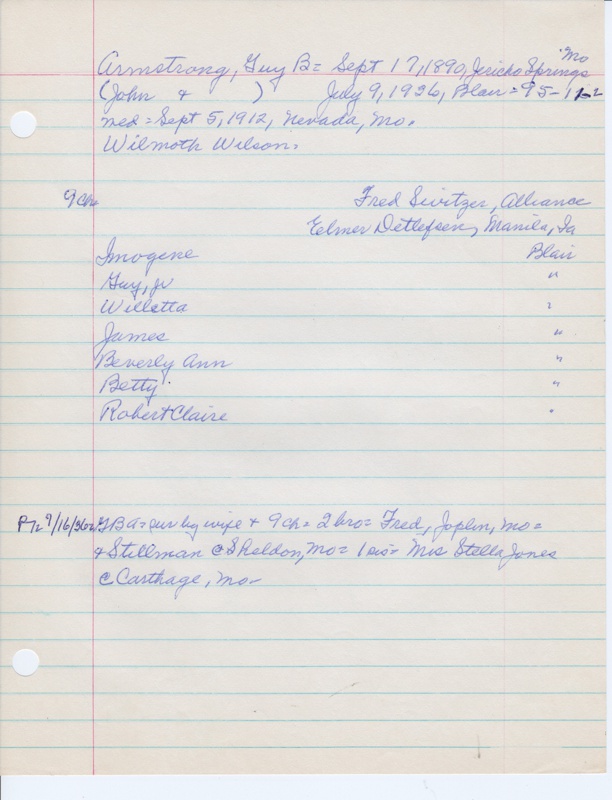 Mo
Armstrong, Guy B = Sept 17, 1890, Jericho Springs
(John + ) July 9, 1936, Blair = 95-1
med = Sept 5, 1912, Nevada, Mo.
Wilmoth Wilson =
9 ch = Fred Sivitzer, Alliance
Elmer Detlefsen, Manila, Ia
Imogene Blair
Guy, Jr "
Willetta "
James "
Beverly Ann "
Betty "
Robert Claire "
7/16/36 = GBA = sur by wife + 9 ch = 2 bro = Fred, Joplin, Mo =
+ Stillman @ Sheldon, Mo = 1 sis = Mrs Stella Jones
@ Carthage, Mo -